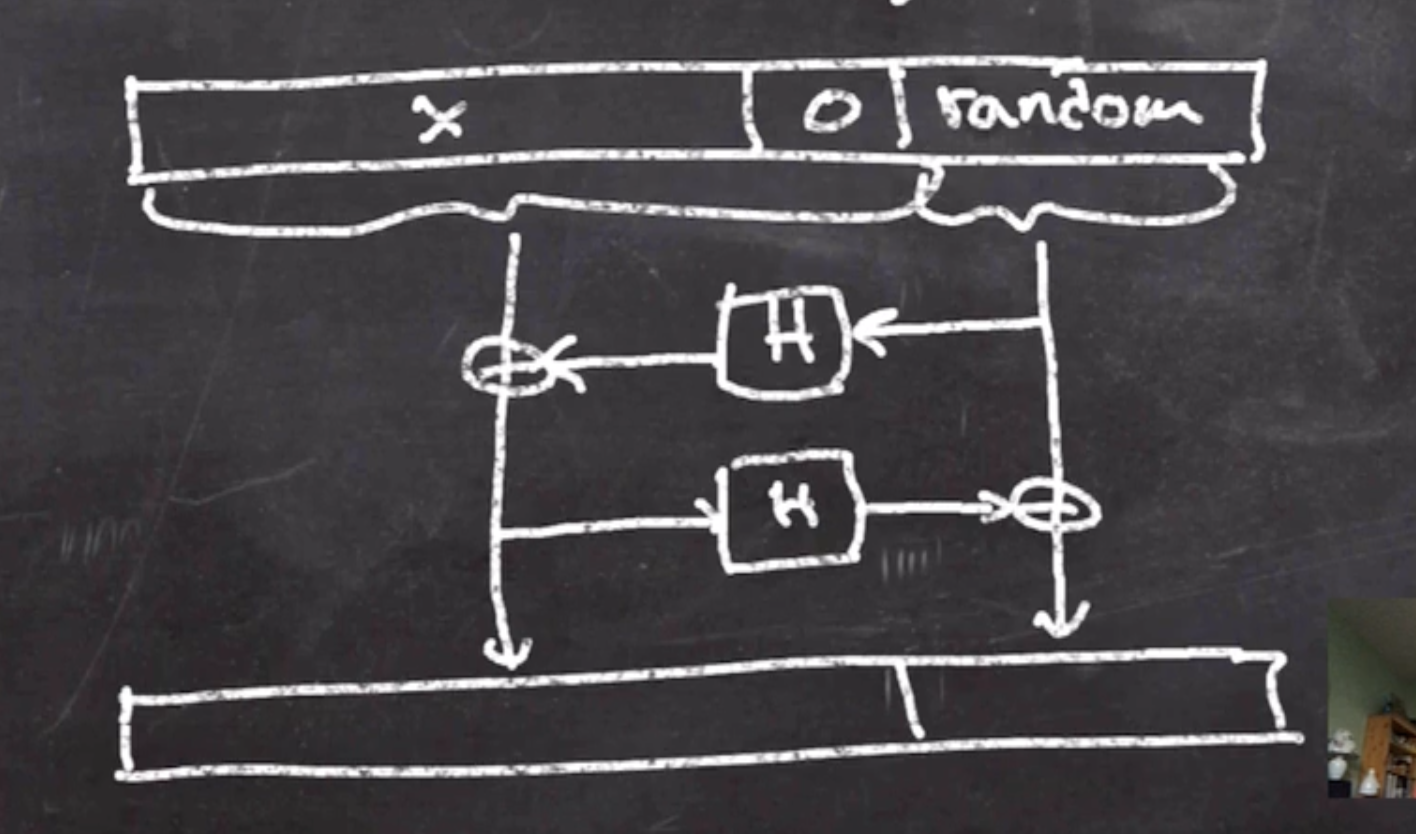 x 0 random
H
H